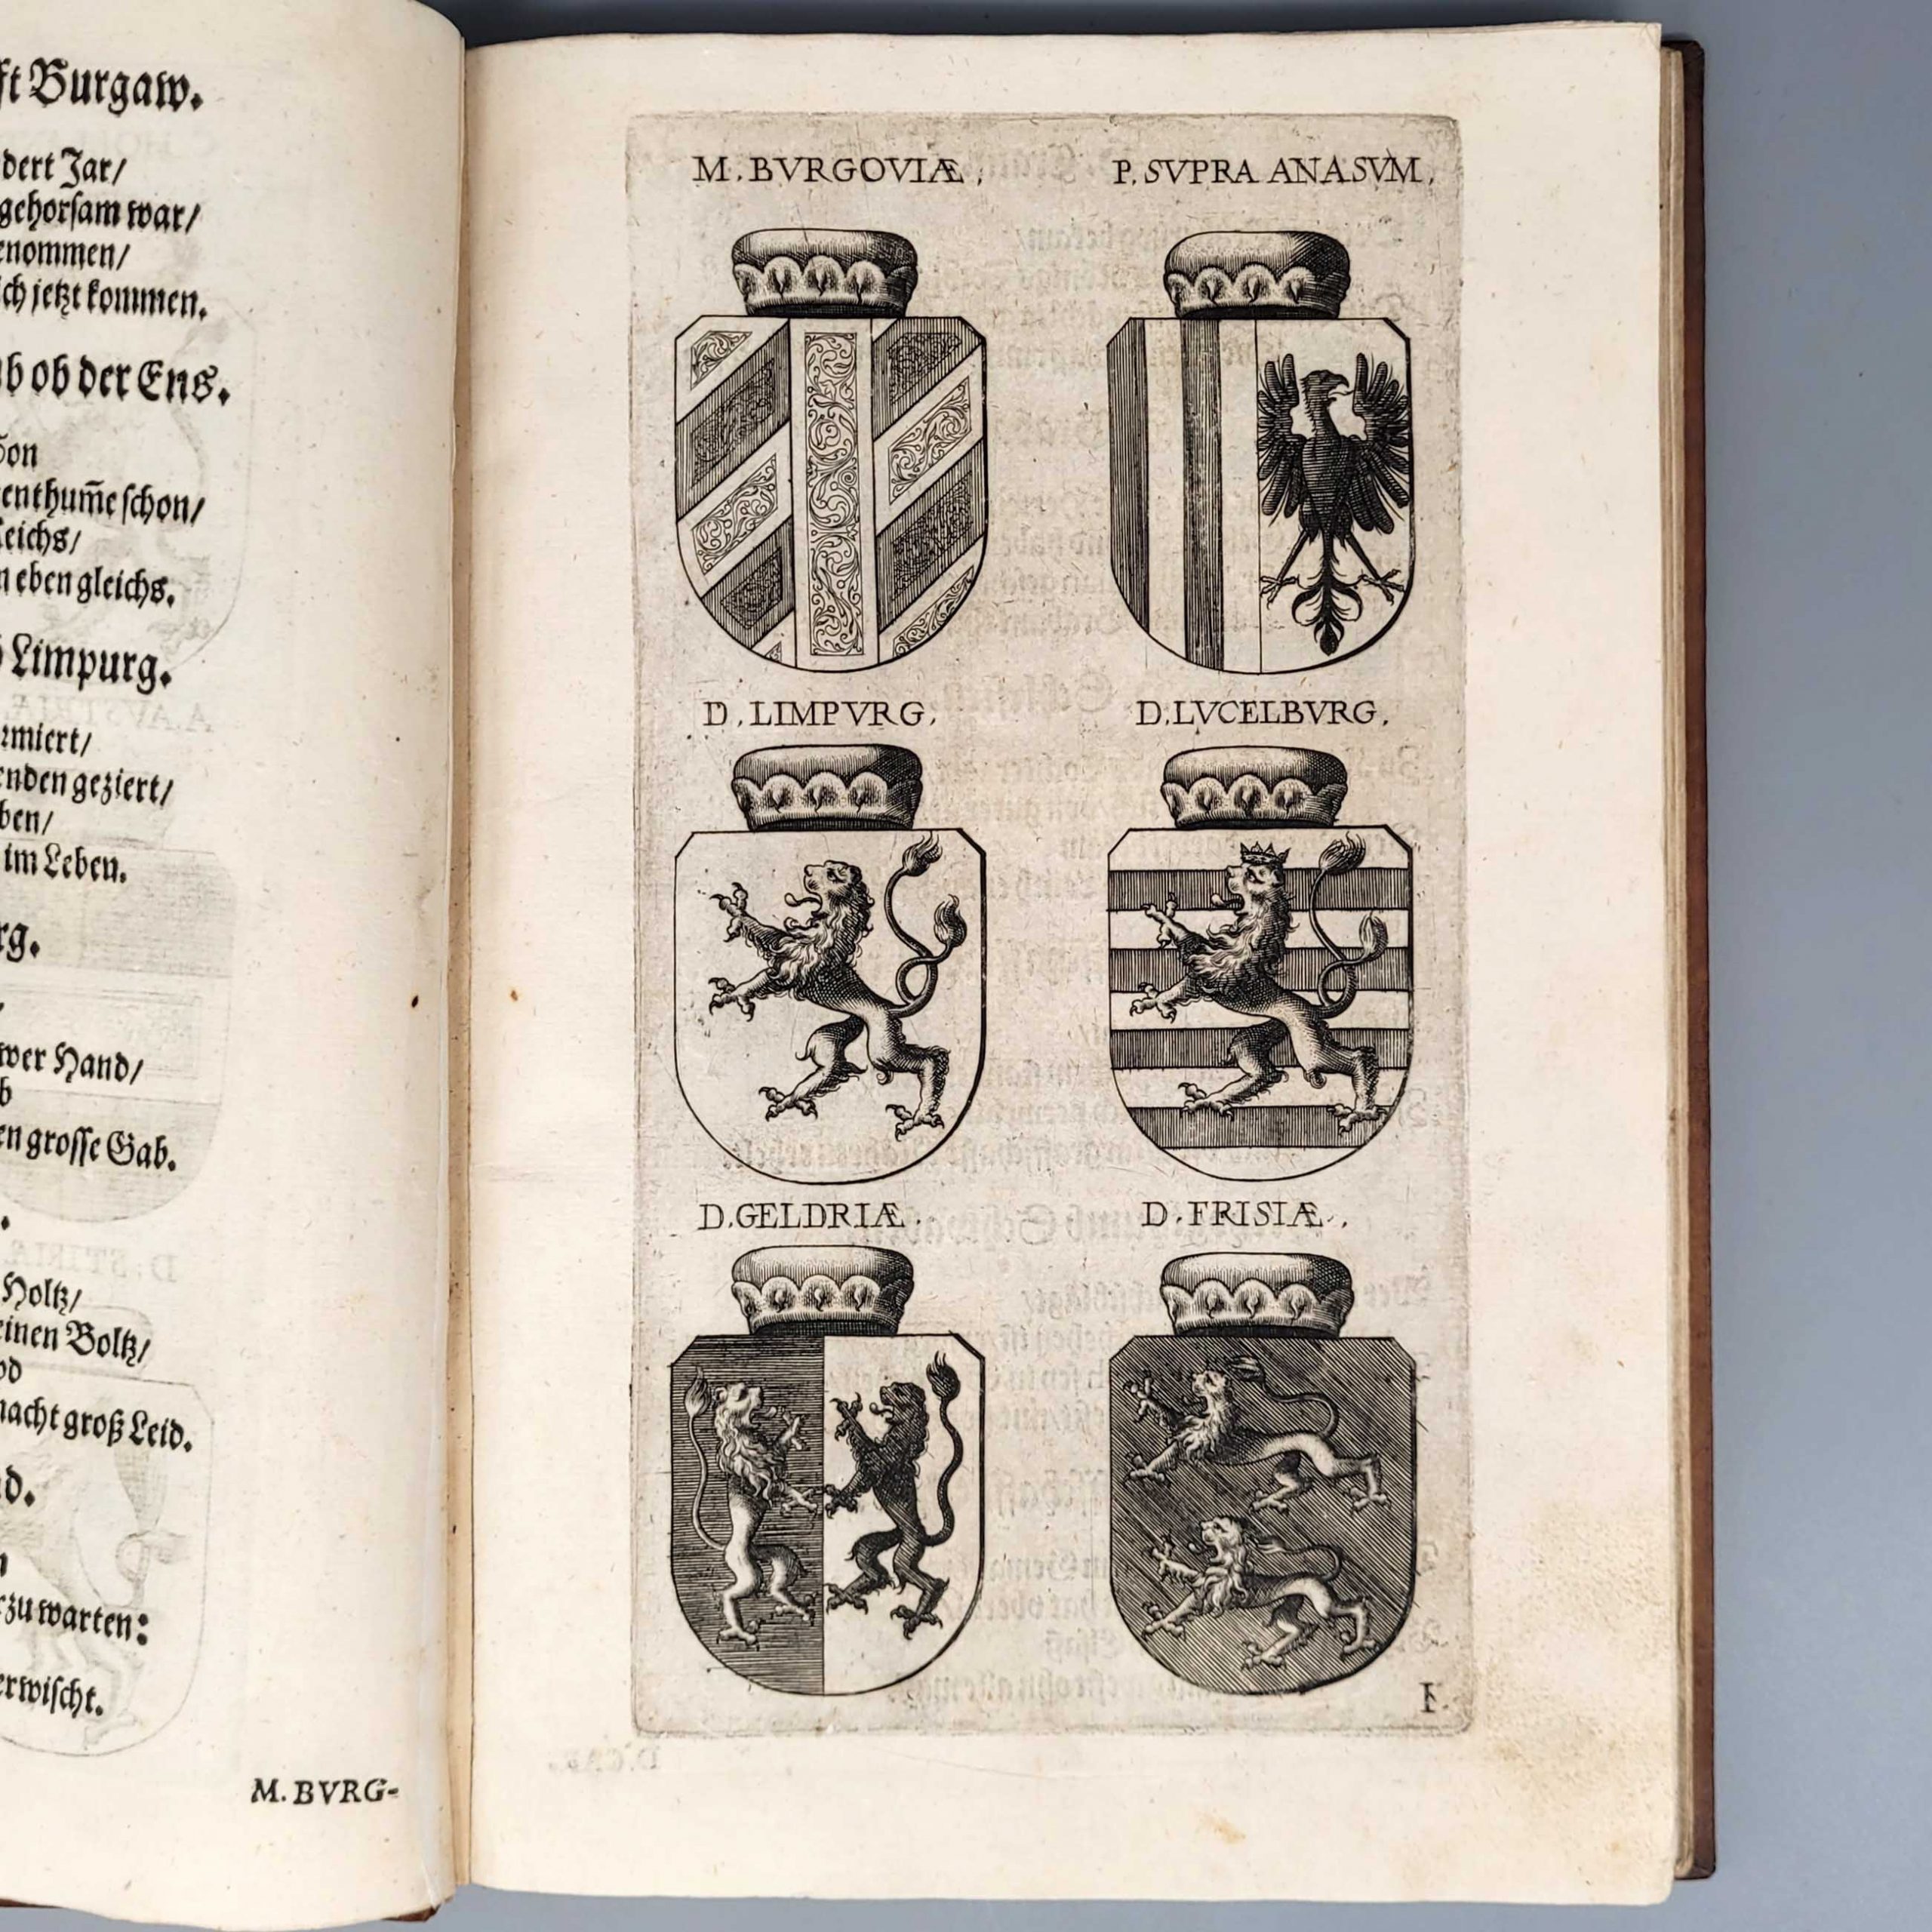 ft Burgaw.
dert Jar/
gehorsam war/
enommen/
ich jetzt kommen.
ob der Ens.
Son
enthum̃e schon/
Reichs/
n eben gleichs.
Limpurg.
rmiert/
enden geziert/
ben/
im Leben.
rg.
wer Hand/
b
en grosse Gab.
Holtz/
einen Boltz/
od
macht groß Leid.
d.
n
rzu warten:
erwischt.
M. BVRG-
M. BVRGOVIÆ,
P. SVPRA ANASVM,
D. LIMPVRG,
D. LVCELBVRG,
D. GELDRIÆ.
D. FRISIÆ.,
F.